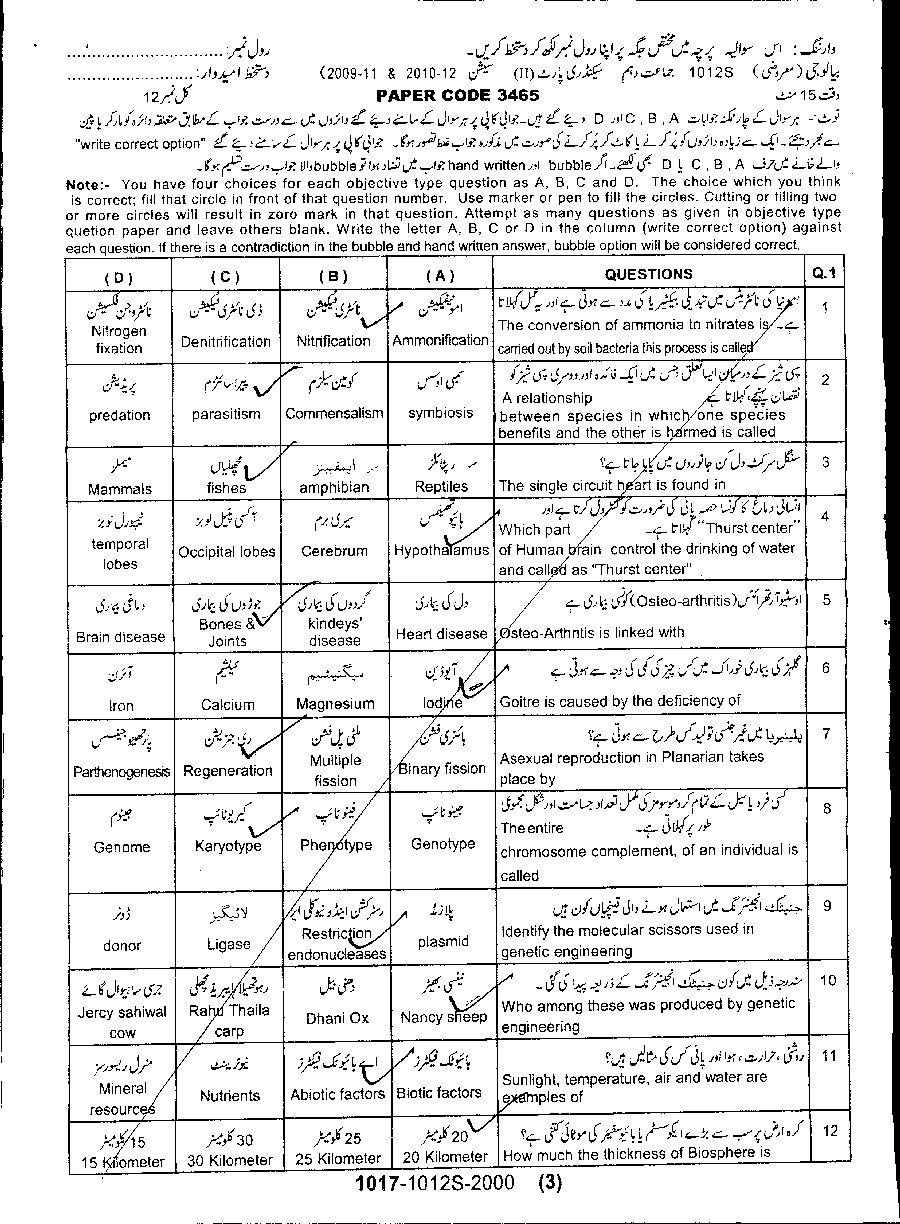 وارننگ: اس سوالیہ پرچہ میں مختص جگہ پر اپنا رول نمبر لکھ کر دستخط کریں۔ رول نمبر:
بیالوجی (معروضی) 1012S جماعت دہم سیکنڈری پارٹ (II) سیشن (2009-11 & 2010-12 دستخط امیدوار:
وقت 15 منٹ PAPER CODE 3465 کل نمبر 12
نوٹ۔ ہر سوال کے چار ممکنہ جوابات A , B , C اور D دیئے گئے ہیں۔ جوابی کاپی پر ہر سوال کے سامنے دیئے گئے دائروں میں سے درست جواب کے مطابق متعلقہ دائرہ کو مارکر یا پین
سے بھر دیجئے۔ ایک سے زیادہ دائروں کو پُر کرنے یا کاٹ کر پُر کرنے کی صورت میں مذکورہ جواب غلط تصور ہوگا۔ جوابی کاپی پر ہر سوال کے سامنے دیئے گئے "write correct option"
والے خانے میں حرف A , B , C یا D بھی لکھئے۔ اگر bubble اور hand written جواب میں تضاد ہوا تو bubble والا جواب درست تسلیم ہوگا۔
Note:- You have four choices for each objective type question as A, B, C and D. The choice which you think
is correct; fill that circle in front of that question number. Use marker or pen to fill the circles. Cutting or filling two
or more circles will result in zero mark in that question. Attempt as many questions as given in objective type
quetion paper and leave others blank. Write the letter A, B, C or D in the column (write correct option) against
each question. If there is a contradiction in the bubble and hand written answer, bubble option will be considered correct.
(D) (C) (B) (A) QUESTIONS Q.1
نائٹروجن فکسیشن ڈی نائٹری فیکیشن نائٹری فیکیشن امونیفیکیشن امونیا کی نائٹریٹس میں تبدیلی بیکٹیریا کی مدد سے ہوتی ہے اور یہ عمل کہلاتا ہے۔ 1
Nitrogen fixation Denitrification Nitrification Ammonification The conversion of ammonia to nitrates is
carried out by soil bacteria this process is called
پریڈیشن پیراسائٹزم کومینسلزم سمبی اوسس سپی شیز کے درمیان ایسا تعلق جس میں ایک کو فائدہ اور دوسری سپی شیز کو 2
نقصان پہنچے، کہلاتا ہے
predation parasitism Commensalism symbiosis A relationship
between species in which one species
benefits and the other is harmed is called
میملز مچھلیاں ایمفیبینز ریپٹائلز سنگل سرکٹ دل کن جانوروں میں پایا جاتا ہے؟ 3
Mammals fishes amphibian Reptiles The single circuit heart is found in
ٹیمپورل لوبز آکسی پیٹل لوبز سیریبرم ہائپوتھیلمس انسانی دماغ کا کونسا حصہ پانی کی ضرورت کو کنٹرول کرتا ہے اور 4
"Thurst center" کہلاتا ہے۔
temporal lobes Occipital lobes Cerebrum Hypothalamus Which part
of Human brain control the drinking of water
and called as "Thurst center"
دماغی بیماری جوڑوں کی بیماری گردوں کی بیماری دل کی بیماری اوسٹیو آرتھرائٹس (Osteo-arthritis) کونسی بیماری ہے 5
Brain disease Bones & Joints kindeys' disease Heart disease Osteo-Arthntis is linked with
آئرن کیلشیم میگنیشیم آیوڈین گلہڑ کی بیماری خوراک میں کس چیز کی کمی کی وجہ سے ہوتی ہے 6
Iron Calcium Magnesium Iodine Goitre is caused by the deficiency of
پارتھینوجینیسس ری جنریشن ملٹی پل فشن بائنری فشن پلینیریا میں غیر جنسی تولید کس طرح سے ہوتی ہے؟ 7
Parthenogenesis Regeneration Multiple fission Binary fission Asexual reproduction in Planarian takes
place by
جینوم کیریوٹائپ فینوٹائپ جینوٹائپ کسی فرد یا سیل کے تمام کروموسومز کی مکمل تعداد جسامت اور شکل مجموعی 8
طور پر کہلاتی ہے۔
Genome Karyotype Phenotype Genotype The entire
chromosome complement, of an individual is
called
ڈونر لائیگیز ریسٹرکشن اینڈو نیوکلی ایز پلازمڈ جنیٹک انجینئرنگ میں استعمال ہونے والی قینچیاں کون ہیں 9
donor Ligase Restriction endonucleases plasmid Identify the molecular scissors used in
genetic engineering
جرسی ساہیوال گائے رہو تھیلا کارپ مچھلی دھنی بیل نینسی بھیڑ مندرجہ ذیل میں کون جنیٹک انجینئرنگ کے ذریعہ پیدا کی گئی۔ 10
Jercy sahiwal cow Rahu Thaila carp Dhani Ox Nancy sheep Who among these was produced by genetic
engineering
منرل ریسورسز نیوٹرینٹ اے بائیوٹک فیکٹرز بائیوٹک فیکٹرز روشنی ، حرارت ، ہوا اور پانی کس کی مثالیں ہیں؟ 11
Mineral resources Nutrients Abiotic factors Biotic factors Sunlight, temperature, air and water are
examples of
15 کلومیٹر 30 کلومیٹر 25 کلومیٹر 20 کلومیٹر کرہ ارض پر سب سے بڑے ایکوسسٹم یا بائیوسفیئر کی موٹائی کتنی ہے؟ 12
15 Kilometer 30 Kilometer 25 Kilometer 20 Kilometer How much the thickness of Biosphere is
1017-1012S-2000 (3)